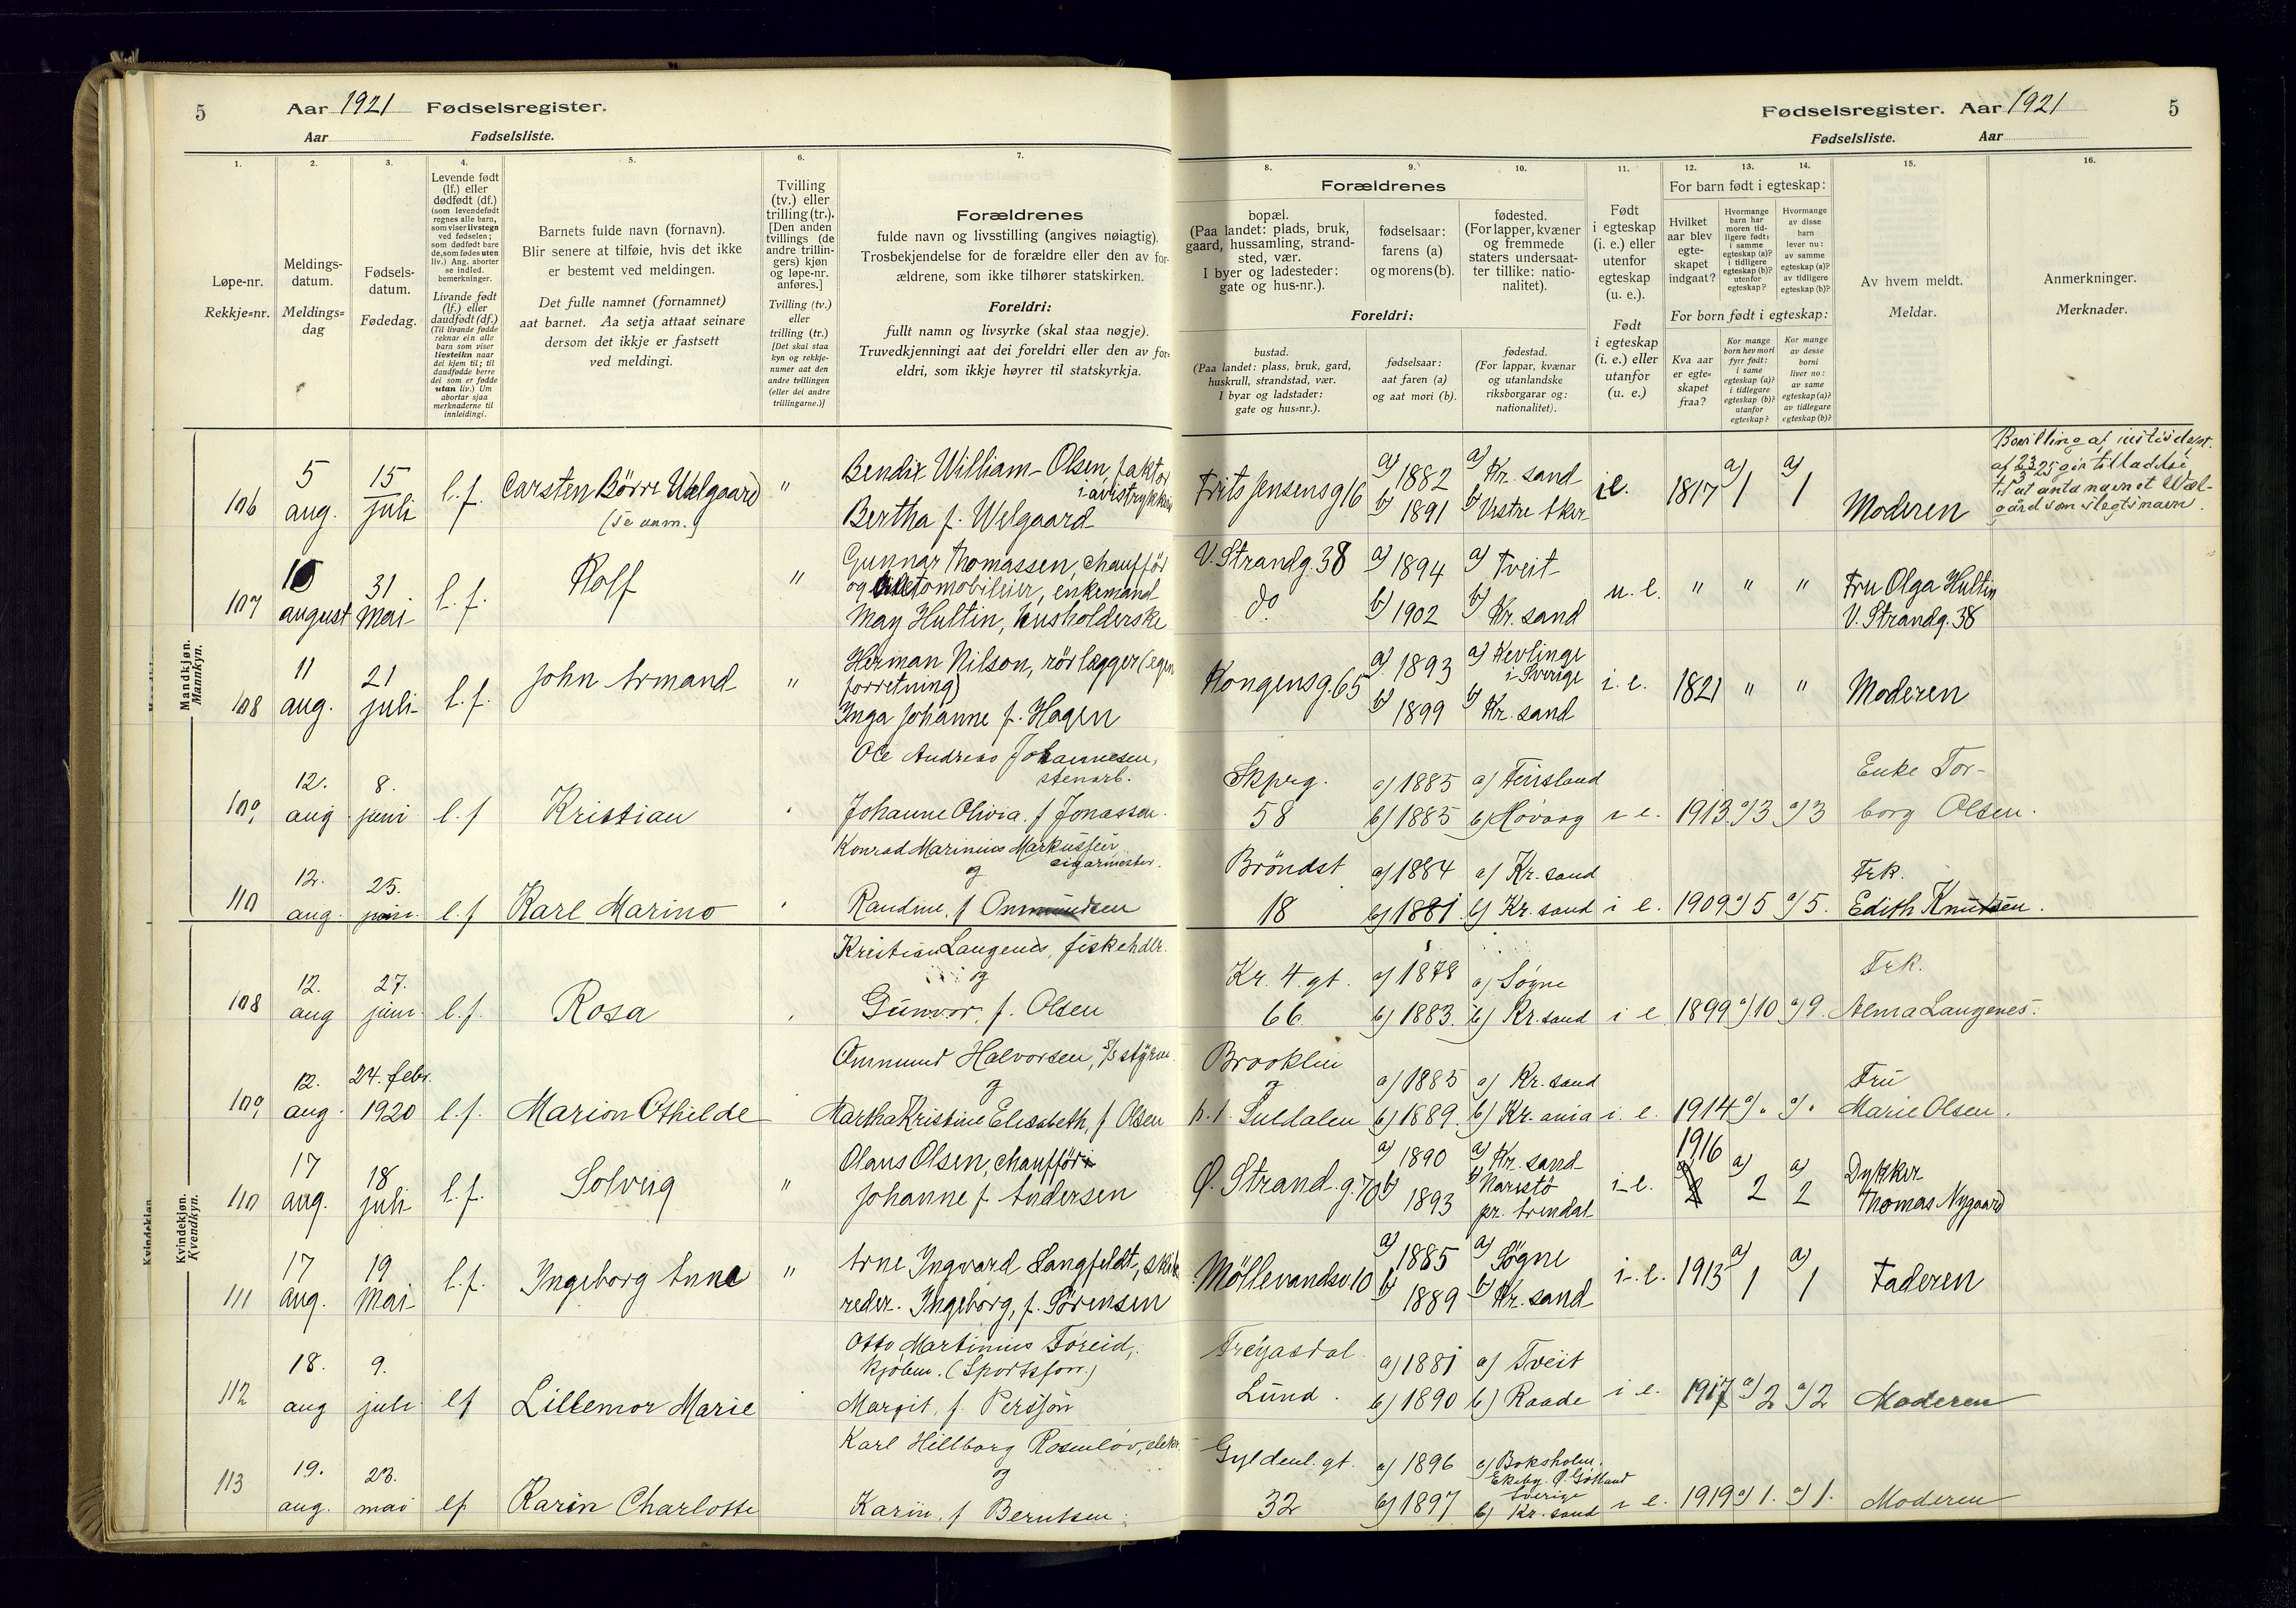 5 Aar 1921 Fødselsregister.
Aar Fødselsliste.
Fødselsregister. Aar 1921 5
Fødselsliste. Aar
1. 2. 3. 4. 5. 6. 7.
Løpe-nr.
Rekkje=nr.
Meldings-
datum.
Meldings=
dag
Fødsels-
datum.
Fødedag.
Levende født
(lf.) eller
dødfødt (df.)
(som levendefødt
regnes alle barn,
som viser livstegn
ved fødselen;
som dødfødt bare
de, som fødes uten
liv.) Ang. aborter
se indled.
bemerkninger.
Livande født
(lf.) eller
daudfødt (df.)
(Til livande fødde
reknar ein alle
born som viser
livsteikn naar
dei kjem til; til
daudfødde berre
dei som er fødde
utan liv.) Um
abortar sjaa
merknaderne til
innleidingi.
Barnets fulde navn (fornavn).
Blir senere at tilføie, hvis det ikke
er bestemt ved meldingen.
Det fulle namnet (fornamnet)
aat barnet. Aa setja attaat seinare
dersom det ikkje er fastsett
ved meldingi.
Tvilling
(tv.) eller
trilling (tr.).
[Den anden
tvillings (de
andre trillin-
gers) kjøn
og løpe-nr.
anføres.]
Tvilling (tv.)
eller
trilling (tr.)
[Det skal staa
kyn og rekkje-
numer aat den
andre tvillingen
(eller dei andre
trillingarne.)]
Forældrenes
fulde navn og livsstilling (angives nøiagtig).
Trosbekjendelse for de forældre eller den av for-
ældrene, som ikke tilhører statskirken.
Foreldri:
fullt namn og livsyrke (skal staa nøgje).
Truvedkjenningi aat dei foreldri eller den av for-
eldri, som ikkje høyrer til statskyrkja.
8. 9. 10. 11. 12. 13. 14. 15. 16.
Forældrenes
bopæl.
(Paa landet: plads, bruk,
gaard, hussamling, strand-
sted, vær.
I byer og ladesteder:
gate og hus-nr.).
fødselsaar:
farens (a)
og morens (b).
fødested.
(For lapper, kvæner
og fremmede
staters undersaat-
ter tillike: natio-
nalitet).
Foreldri:
bustad.
(Paa landet: plass, bruk, gard,
huskrull, strandstad, vær.
I byar og ladstader:
gate og hus=nr.).
fødselsaar:
aat faren (a)
og aat mori (b).
fødestad.
(For lappar, kvænar
og utanlandske
riksborgarar og:
nationalitet).
Født
i egteskap
(i. e.) eller
utenfor
egteskap
(u. e.).
Født
i egteskap
(i. e.) eller
utanfor
(u. e.)
For barn født i egteskap:
Hvilket
aar blev
egte-
skapet
indgaat?
Hvormange
barn har
moren tid-
ligere født:
i samme
egteskap (a)?
i tidligere
egteskap (b)?
utenfor
egteskap?
Hvormange
av disse
barn
lever nu:
av samme
egteskap (a)?
av tidligere
egteskap (b)?
For born født i egteskap:
Kva aar
er egte=
skapet
fraa?
Kor mange
born hev mori
fyrr født:
i same
egteskap (a)?
i tidlegare
egteskap (b)?
utanfor
egteskap?
Kor mange
av desse
borni
liver no:
av same
egteskap (a)?
av tidlegare
egteskap (b)?
Av hvem meldt.
Meldar.
Anmerkninger.
Merknader.
Mandkjøn.
Mannkyn.
106 5 aug. 15 juli l.f. Carsten Börre Wælgaard "
(se anm.)
Bendix William Olsen, faktor
i avistrykkeri
Bertha f. Welgaard
Frits Jensensg 16 a) 1882 b) 1891 a) Kr. sand b) Vestre Aker i e. 1817 a) 1 a) 1 Moderen
Bevilling af justisdept.
af 23/3 25 gir tilladelse
til at anta navnet Wæl-
gård som slegtsnavn.
107 10 august 31 Mai l.f. Rolf "
Gunnar Thomassen, chaufför
og automobileier, enkemand
May Hultin, husholderske
V. Strandg. 38 do a) 1894 b) 1902 a) Tveit b) Kr. sand u. e. " " " Fru Olga Hultin
V. Strandg. 38
108 11 aug. 21 juli l.f. John Armand "
Herman Nilson, rörlægger (egen
forretning)
Inga Johanne f. Hagen
Kongensg. 65 a) 1893 b) 1899 a) Kevlinge
i Sverige b) Kr. sand i. e. 1821 " " Moderen
109 12. aug 8. juni l.f Kristian
Ole Andreas Johannesen,
stenarb.
Johanne Olivia, f Jonassen.
Skprg. 58 a) 1885 b) 1885 a) Finsland b) Høvaag i e. 1913. a) 3 a) 3 Enke Tor-
borg Olsen.
110 12. aug. 25. juni. l.f Karl Marino
Konrad Marinius Markussen
og cigarmester.
Randine, f Ommundsen
Brøndst 18 a) 1884 b) 1881. a) Kr. sand b) Kr. sand i e. 1909 a) 5 a) 5. Frk.
Edith Knutsen.
Kvindekjøn.
Kvendkyn.
108 12. aug 27. juni. l.f. Rosa
Kristian Langenes, fiskehdlr.
og
Gunvor, f. Olsen
Kr. 4. gt. 66 a) 1878 b) 1883. a) Søgne b) Kr. sand i e 1899 a) 10 a) 9. Frk.
Alma Langenes.
109 12. aug. 24. febr. 1920 l.f. Marion Othilde
Ommund Halvorsen, s/s styrm.
og
Martha Kristine Elisabeth, f Olsen
Brooklin
og
p.t. Suldalen a) 1885 b) 1889. a) Kr. sand b) Kr. ania i. e. 1914 a) . a) . Fru
Marie Olsen.
110 17 aug. 18 juli l.f. Solveig "
Olaus Olsen, chaufför
Johanne f. Andersen
Ø. Strand.g. 70 a) 1890 b) 1893 a) Kr. sand b) Narestö
pr. Arendal i e. 1916 a) 2 a) 2 Dykker
Thomas Nygaard
111 17 aug. 19 Mai l.f. Ingeborg Anne "
Arne Ingvard Langfeldt, skibs
reder. Ingeborg, f. Sörensen
Möllevandsv. 10 a) 1885 b) 1889 a) Søgne b) Kr. sand i. e. 1913 a) 1 a) 1 Faderen
112 18. aug 9. juli lf Lillemor Marie
Otto Martinius Foreid,
kjøbm. (Sportsforr.)
Margit, f. Persson
Freyasdal.
Lund. a) 1881 b) 1890 a) Tveit b) Raade i e. 1917 a) 2 a) 2 Moderen
113 19. aug. 23. mai lf. Karin Charlotte
Karl Hillborg Rosenlöv, elektr.
og
Karin, f Berntsen.
Gyldenl. gt. 32 a) 1896 b) 1897 a) Boksholm.
Ekeby. Ø. Götland
Sverige
b) Kr. sand i e. 1919 a) 1. a) 1. Moderen